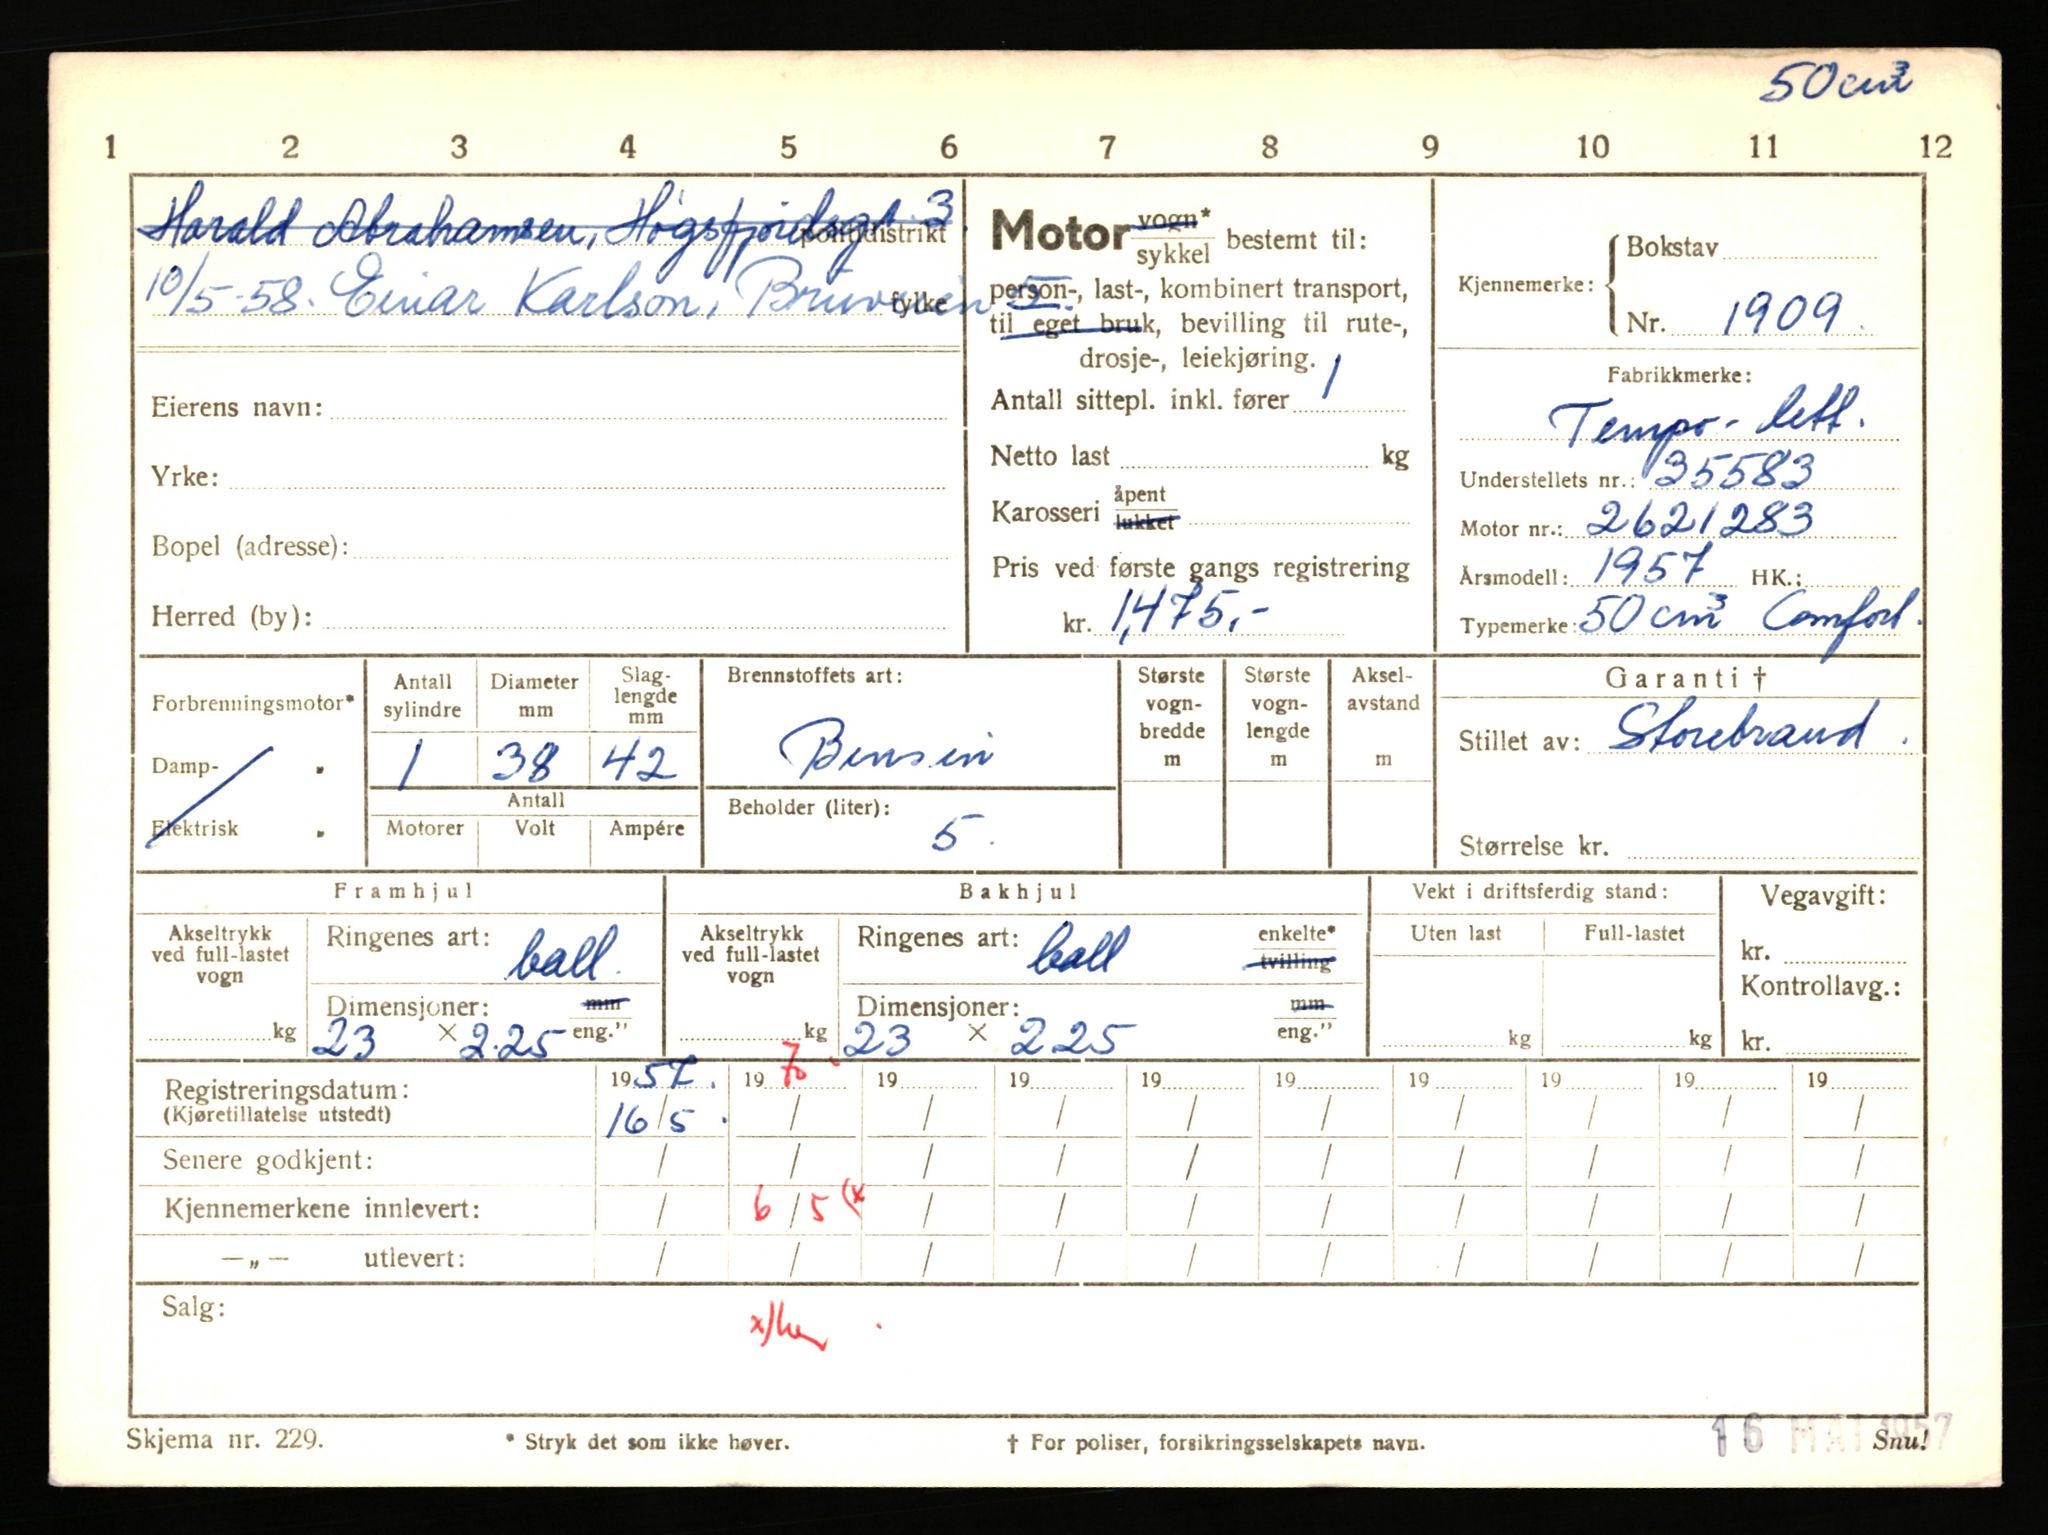 50 cm³
1 2 3 4 5 6 7 8 9 10 11 12
Harald Abrahamsen, Høgsfjordsgt. 3
politidistrikt
10/5-58. Einar Karlson, 5.
fylke
Eierens navn:
Yrke:
Bopel (adresse):
Herred (by):
Motor vogn* sykkel bestemt til:
person-, last-, kombinert transport,
til eget bruk, bevilling til rute-,
drosje-, leiekjøring.
Antall sittepl. inkl. fører 1
Netto last kg
Karosseri åpent lukket
Pris ved første gangs registrering
kr. 1,475,-
Kjennemerke: Bokstav
Nr. 1909.
Fabrikkmerke:
Tempo-lett.
Understellets nr.: 35583
Motor nr.: 2621283
Årsmodell: 1957 HK.:
Typemerke: 50 cm³ Comfort.
Forbrenningsmotor*
Damp- "
Elektrisk "
Antall sylindre
1
Diameter mm
38
Slaglengde mm
42
Antall
Motorer Volt Ampére
Brennstoffets art:
Bensin
Beholder (liter):
5.
Største vognbredde m
Største vognlengde m
Akselavstand m
Garanti †
Stillet av: Storebrand.
Størrelse kr.
Framhjul
Akseltrykk ved full-lastet vogn
kg
Ringenes art: ball.
Dimensjoner: mm
23 × 2.25 eng."
Bakhjul
Akseltrykk ved full-lastet vogn
kg
Ringenes art: ball enkelte* tvilling
Dimensjoner: mm
23 × 2.25 eng."
Vekt i driftsferdig stand:
Uten last Full-lastet
kg kg
Vegavgift:
kr.
Kontrollavg.:
kr.
Registreringsdatum: 1957. 1970. 19 19 19 19 19 19 19 19
(Kjøretillatelse utstedt) 16/5. / / / / / / / / /
Senere godkjent: / / / / / / / / / /
Kjennemerkene innlevert: / 6/5 (x / / / / / / / /
—„— utlevert: / / / / / / / / / /
Salg:
Skjema nr. 229.
* Stryk det som ikke høver.
† For poliser, forsikringsselskapets navn.
16 MAI 1957
Snu!